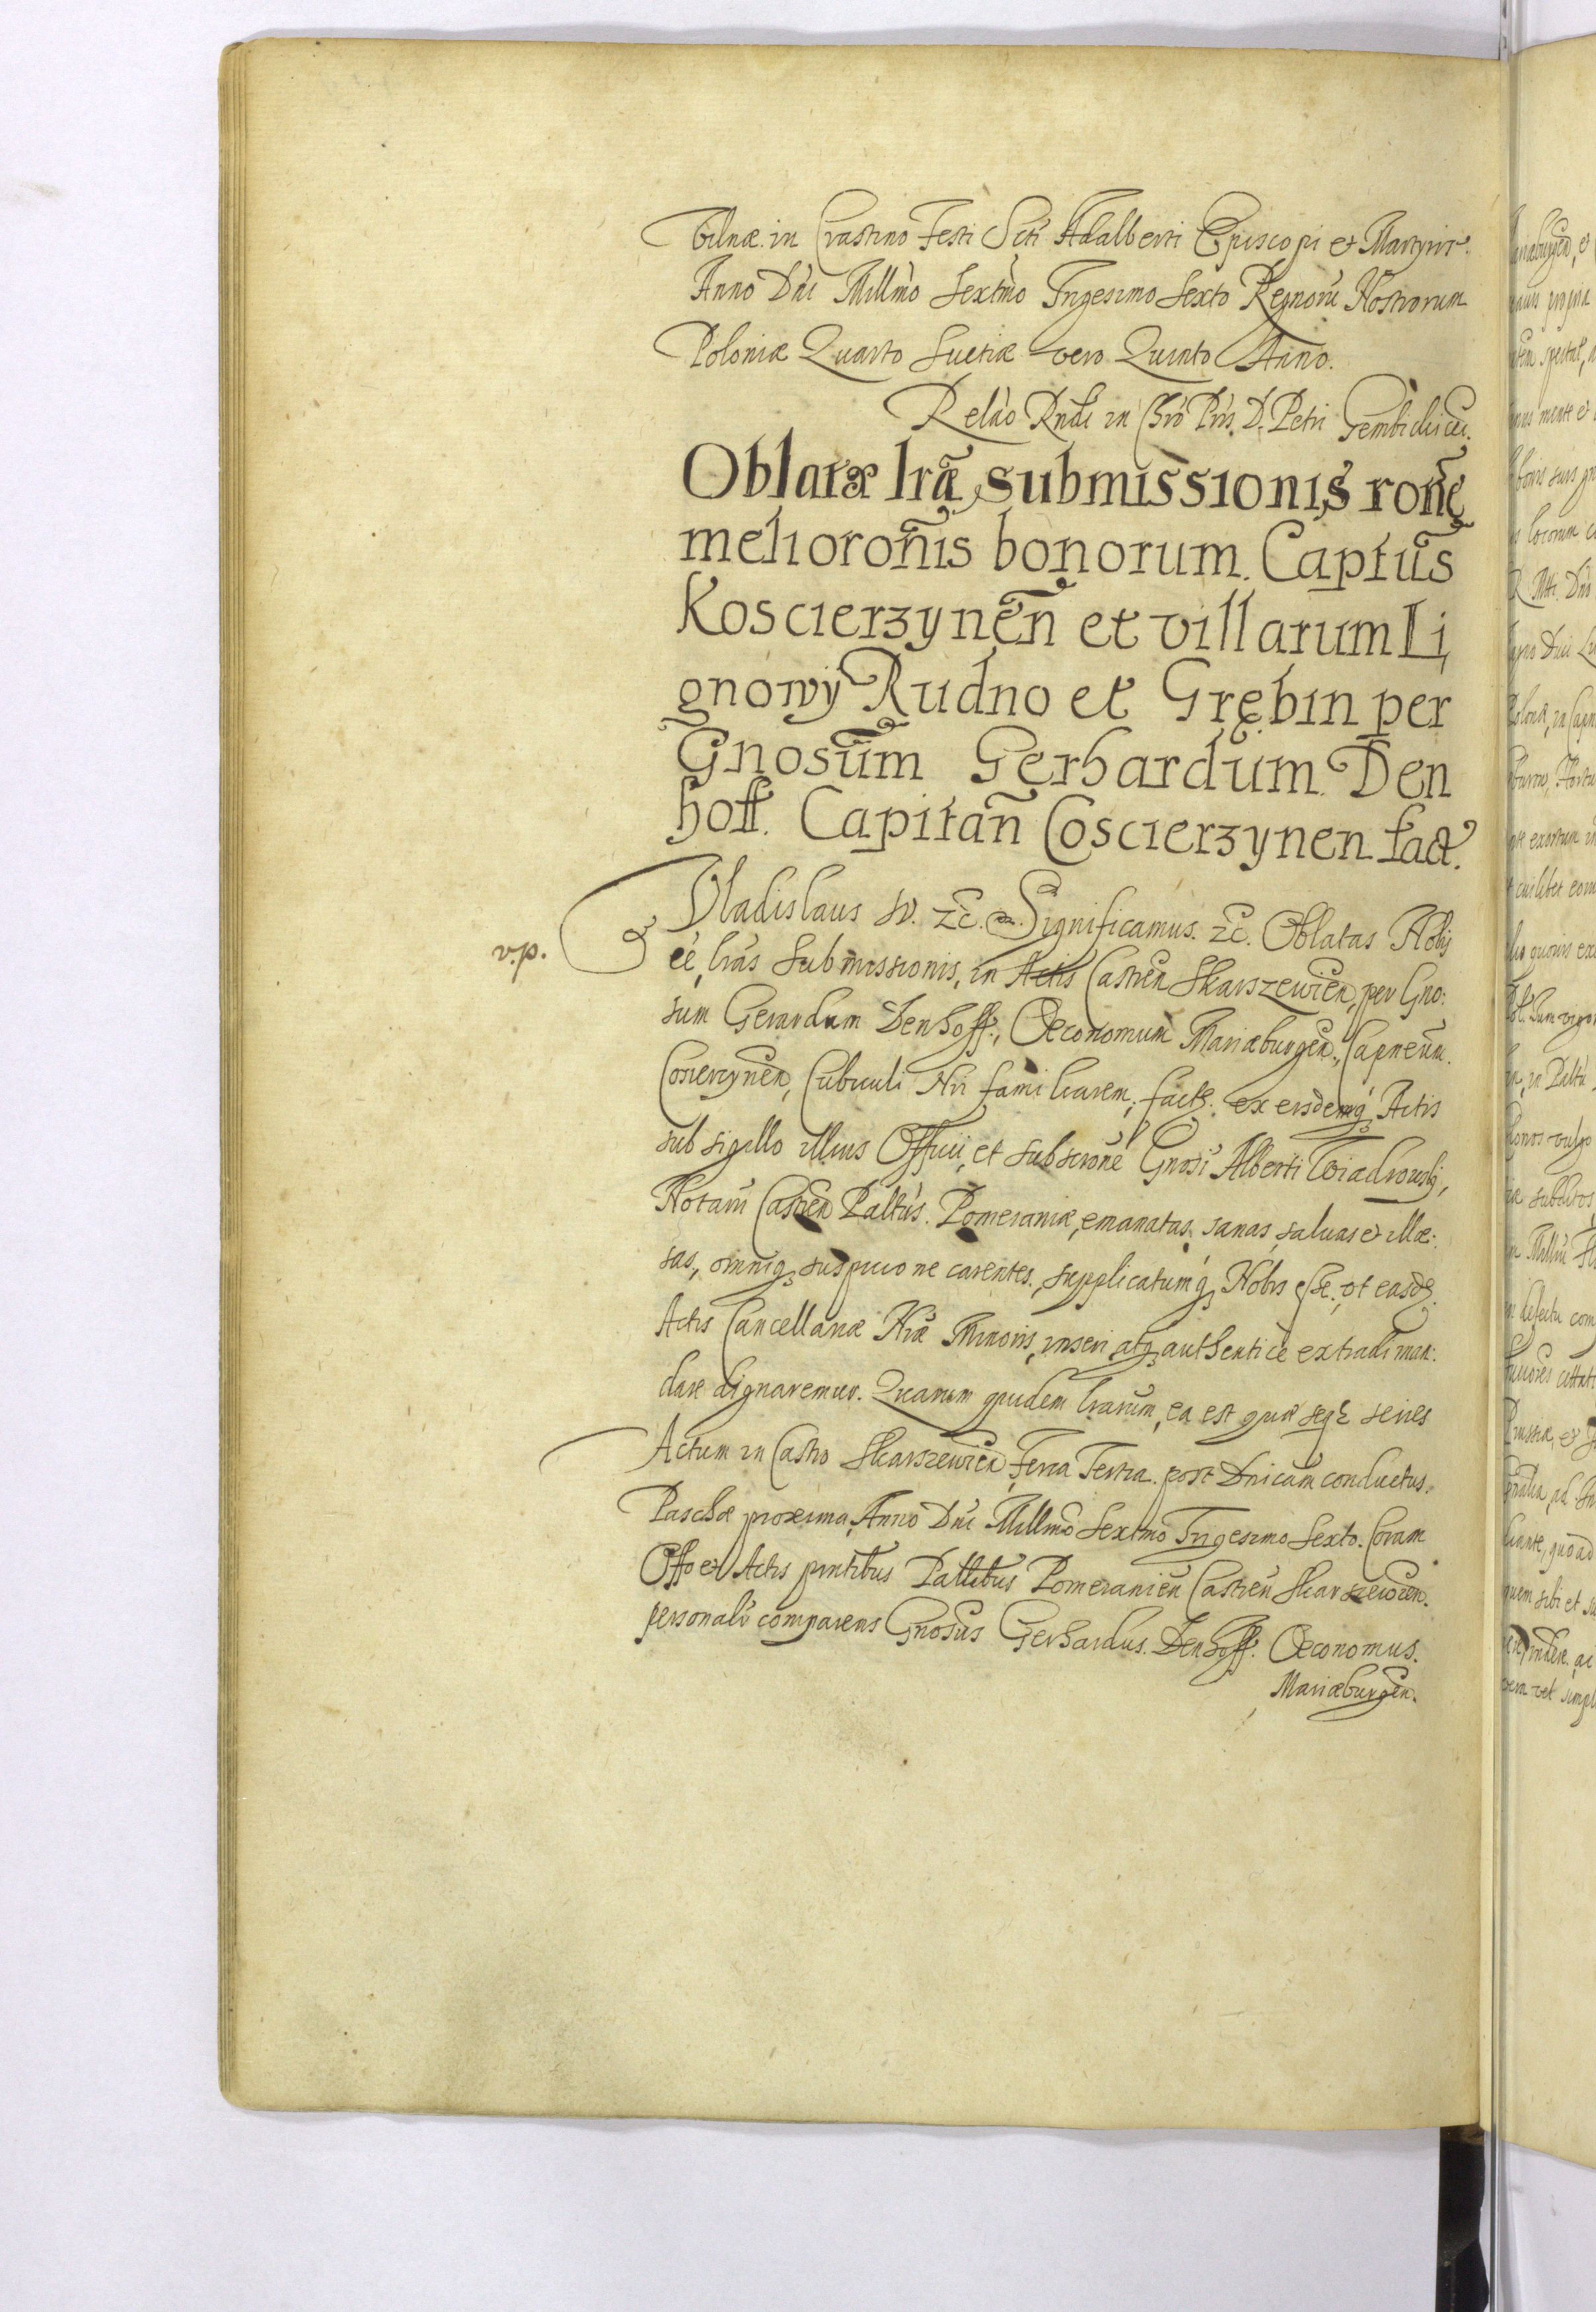 Vilnæ in Crastino Festi Scti Adalberti Episcopi et Martyris.
Anno Dni Millmo Sextmo Trigesimo Sexto Regnorũ Nostrorum
Poloniæ Quarto Suetiæ vero Quinto Anno.
Relão Rndi in Chro Pris D. Petri Gembicki cũ.
Oblatæ lrã submissionis ronẽ
melioroñis bonorum. Captũs
Koscierzynẽn et villarum Li,
gnowÿ Rudno et Grębin per
Gnosũm Gerhardum Den
hoff. Capitañ Coscierzynen fact.
Vladislaus IV. zc. Significamus. zc. Oblatas Nobis
v.p.
eẽ, lras submissionis, in Actis Castren Skarszewien, per Gno:
sum Gerardum Denhoff, Œconomum Mariæburgen, Capneum
Coscierzynen, Cubiculi Nri familiarem, fact. ex eisdemq Actis
sub sigillo illius Officii, et subscrone Gnosi Alberti Wiadrowsky,
Notarii Castren Paltus. Pomeraniæ, emanatas, sanas, saluas et illæ:
sas, omniq suspicione carentes, supplicatumq Nobis esse, vt easd
Actis Cancellariæ Nræ Minoris, inseri atq authenticè extradi man:
dare dignaremur. Quarum quidem lrarum, ea est quæ seqr series
Actum in Castro Skarszewien Feria Tertia post Dnicam conductus
Paschæ proxima, Anno Dni Millmo Sextmo Trigesimo Sexto. Coram
Offo et Actis pntibus Paltibus Pomeranien Castren Skarszewien.
personalr comparens Gnosus Gerhardus Denhoff Œconomus.
Mariæburgen.